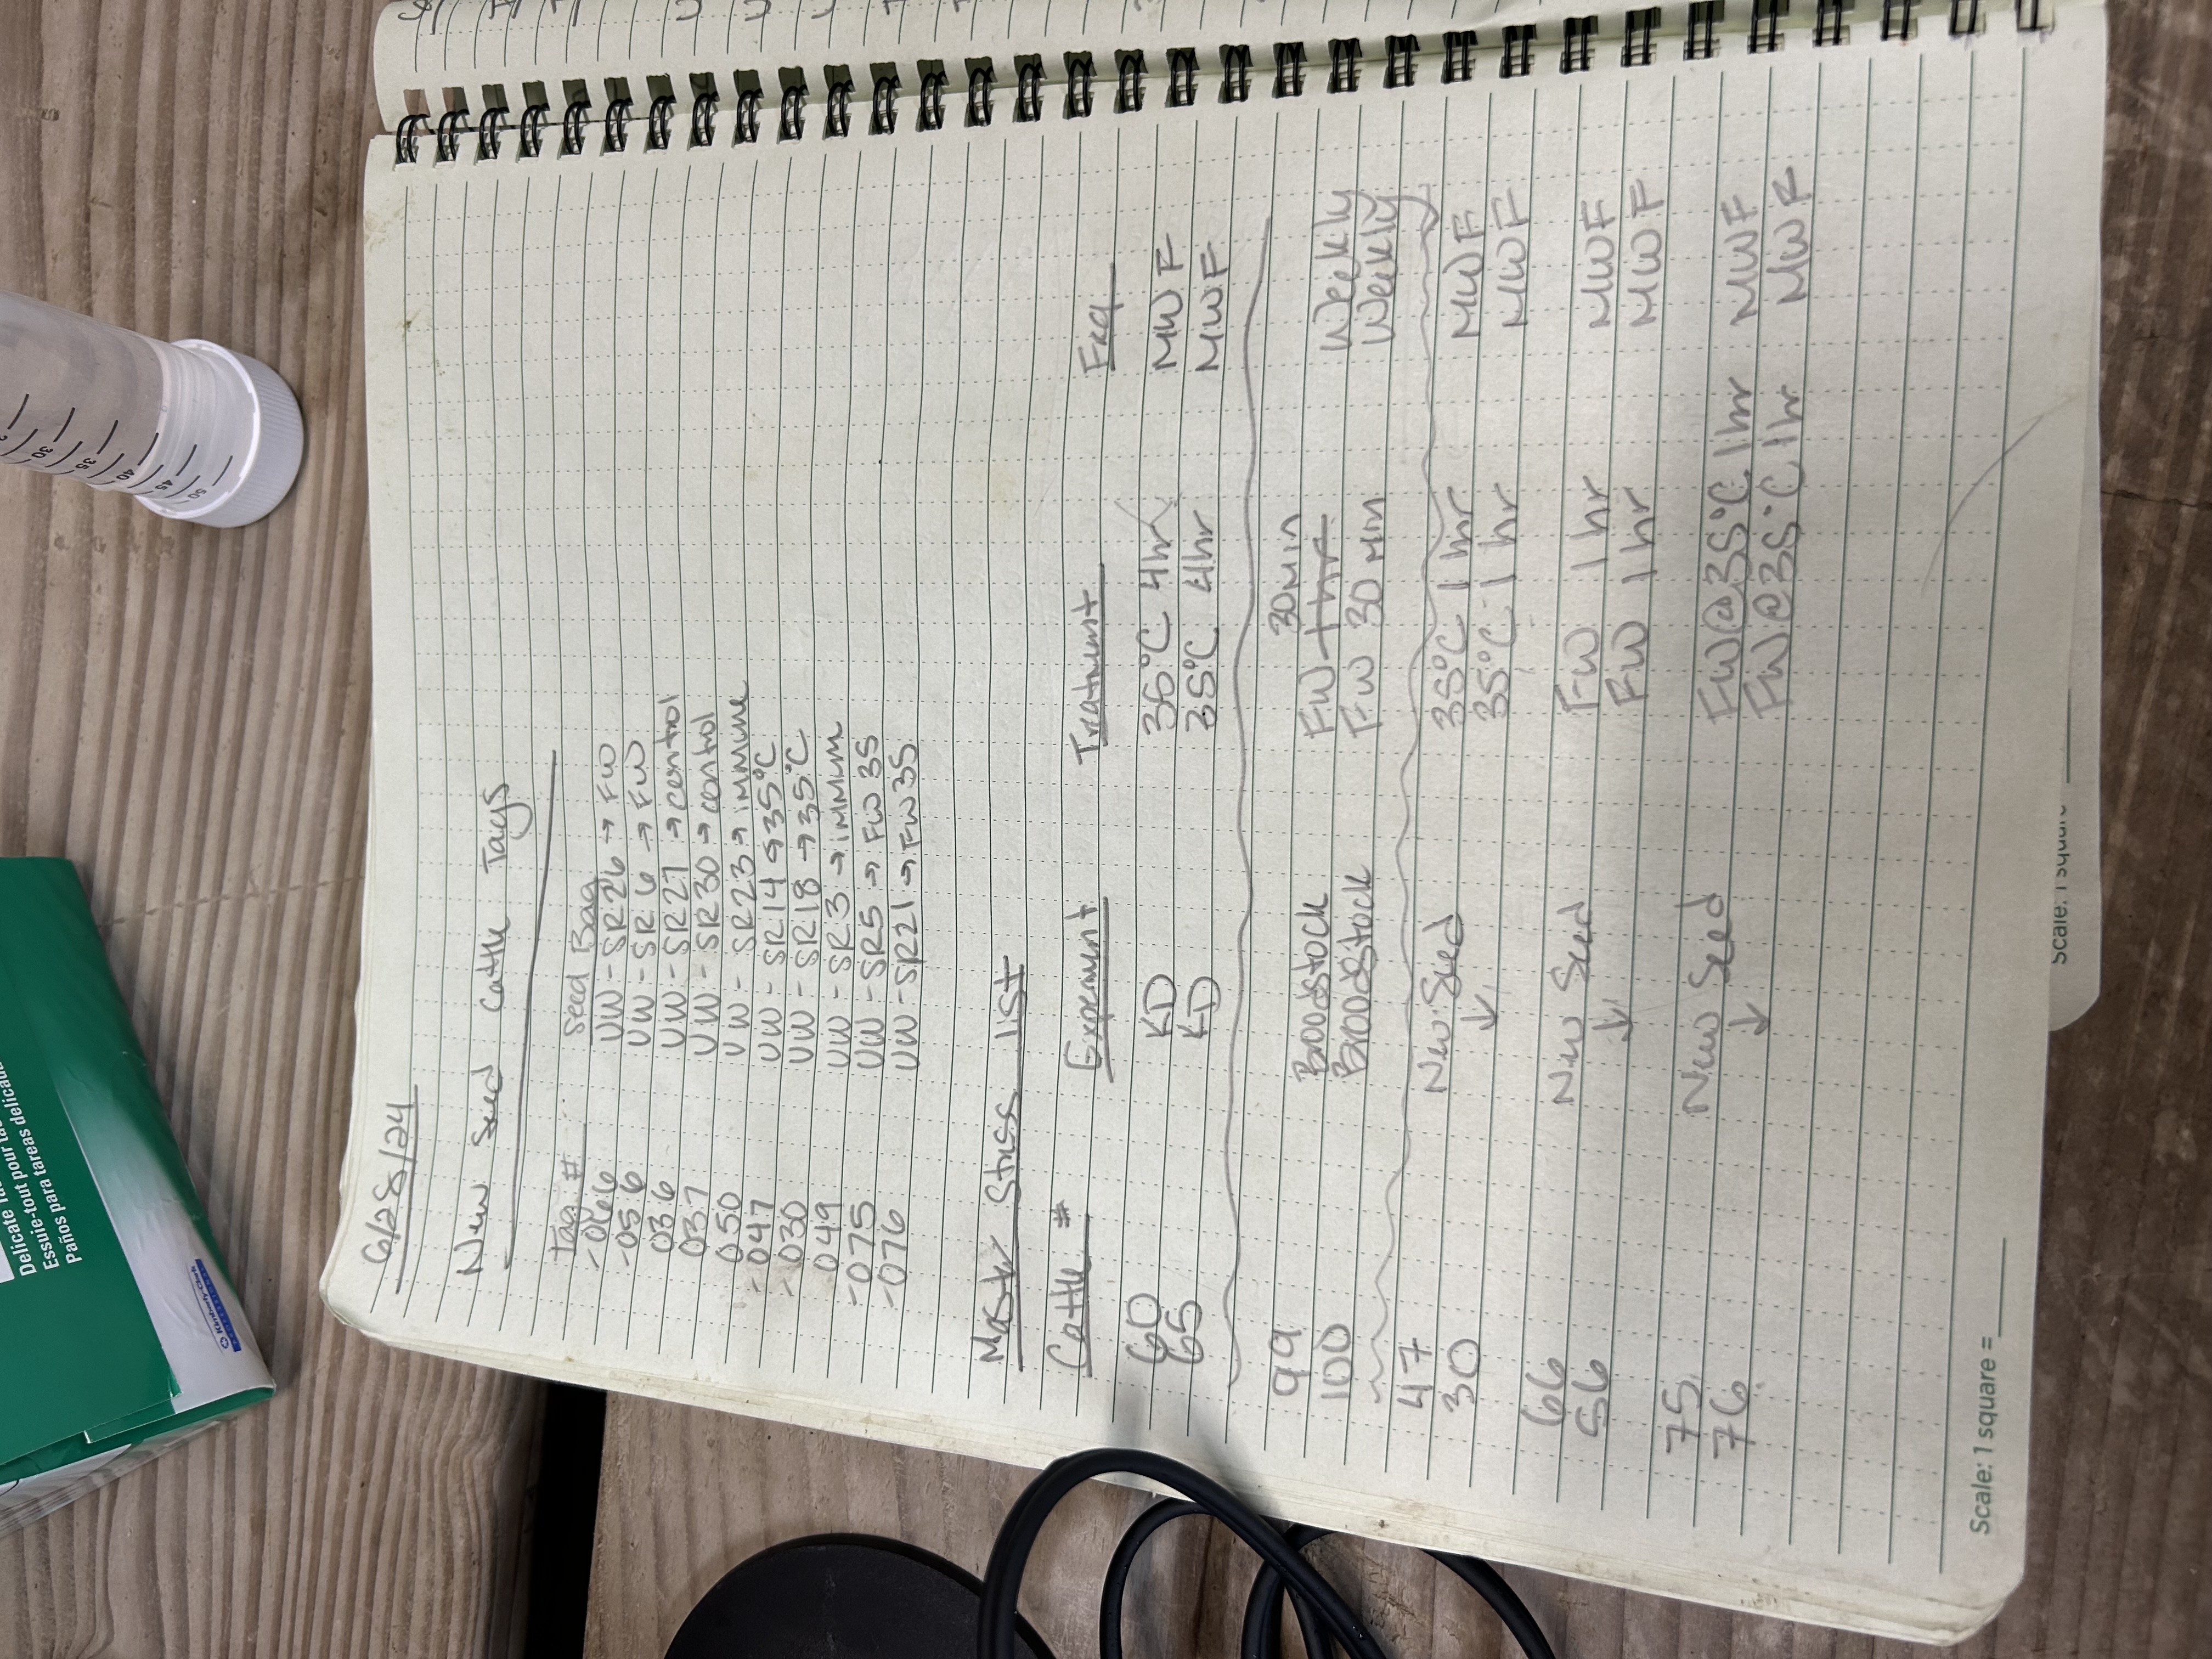 Delicate
Essuie-tout pour
Paños para tareas delicadas
Kimberly-Clark
PROFESSIONAL
30
35
40
45
50
6/28/24
New Seed Cattle Tags
Tag # Seed Bag
-066 UW-SR26 → FW
-056 UW-SR 6 → FW
036 UW-SR27 → control
037 UW-SR30 → control
050 UW-SR23 → immune
-047 UW-SR14 → 35°C
-030 UW-SR18 → 35°C
049 UW-SR3 → immune
-075 UW-SR5 → FW 35
-076 UW-SR21 → FW35
Master Stress list
Cattle # Experiment Treatment Freq
60 KD 35°C 4hr MWF
65 KD 35°C 4hr MWF
30 min
99 Broodstock FW 1 hr Weekly
100 Broodstock FW 30 min Weekly
47 New Seed 35°C 1 hr MWF
30 ↓ 35°C 1 hr MWF
66 New Seed FW 1 hr MWF
56 ↓ FW 1 hr MWF
75 New Seed FW@35°C 1hr MWF
76 ↓ FW@35°C 1hr MWF
Scale: 1 square =
Scale: 1 square